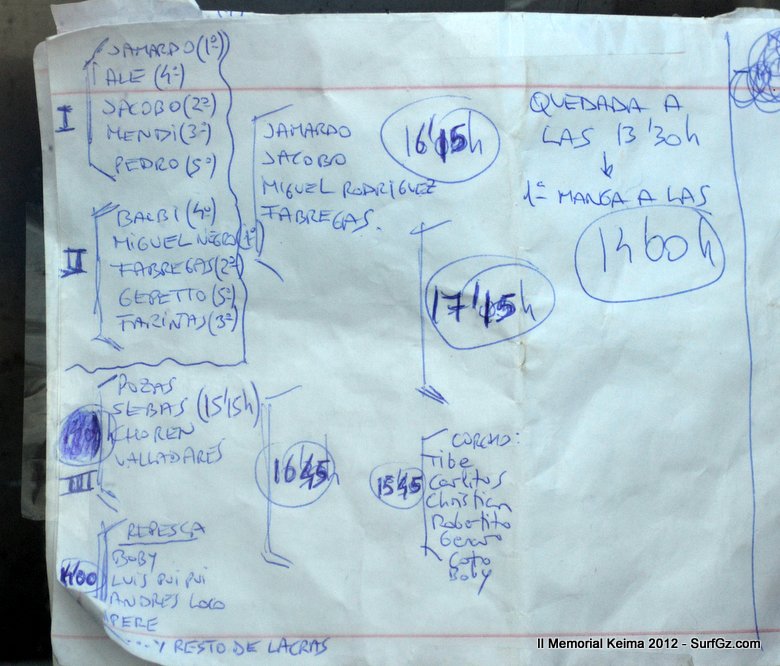 I
JAMARDO (1º)
ALE (4º)
JACOBO (2º)
MENDI (3º)
PEDRO (5º)
II
BALBI (4º)
MIGUEL NEGRO (1º)
FABREGAS (2º)
GEPETTO (5º)
FARIÑAS (3º)
III
POZAS
SEBAS (15'15h)
CHOREN
VALLADARES
14'00
REPESCA
BOBY
LUIS PIPI
ANDRES LOCO
PERE
.... Y RESTO DE LACRAS
JAMARDO
JACOBO
MIGUEL RODRIGUEZ
FABREGAS.
16'15h
16'45h
17'15h
15'45
CORCHO:
Tibe
Carlitos
Christian
Robertito
Genaro
Coto
Boby
QUEDADA A
LAS 13'30h
1ª MANGA A LAS
14'00h
II Memorial Keima 2012 - SurfGz.com